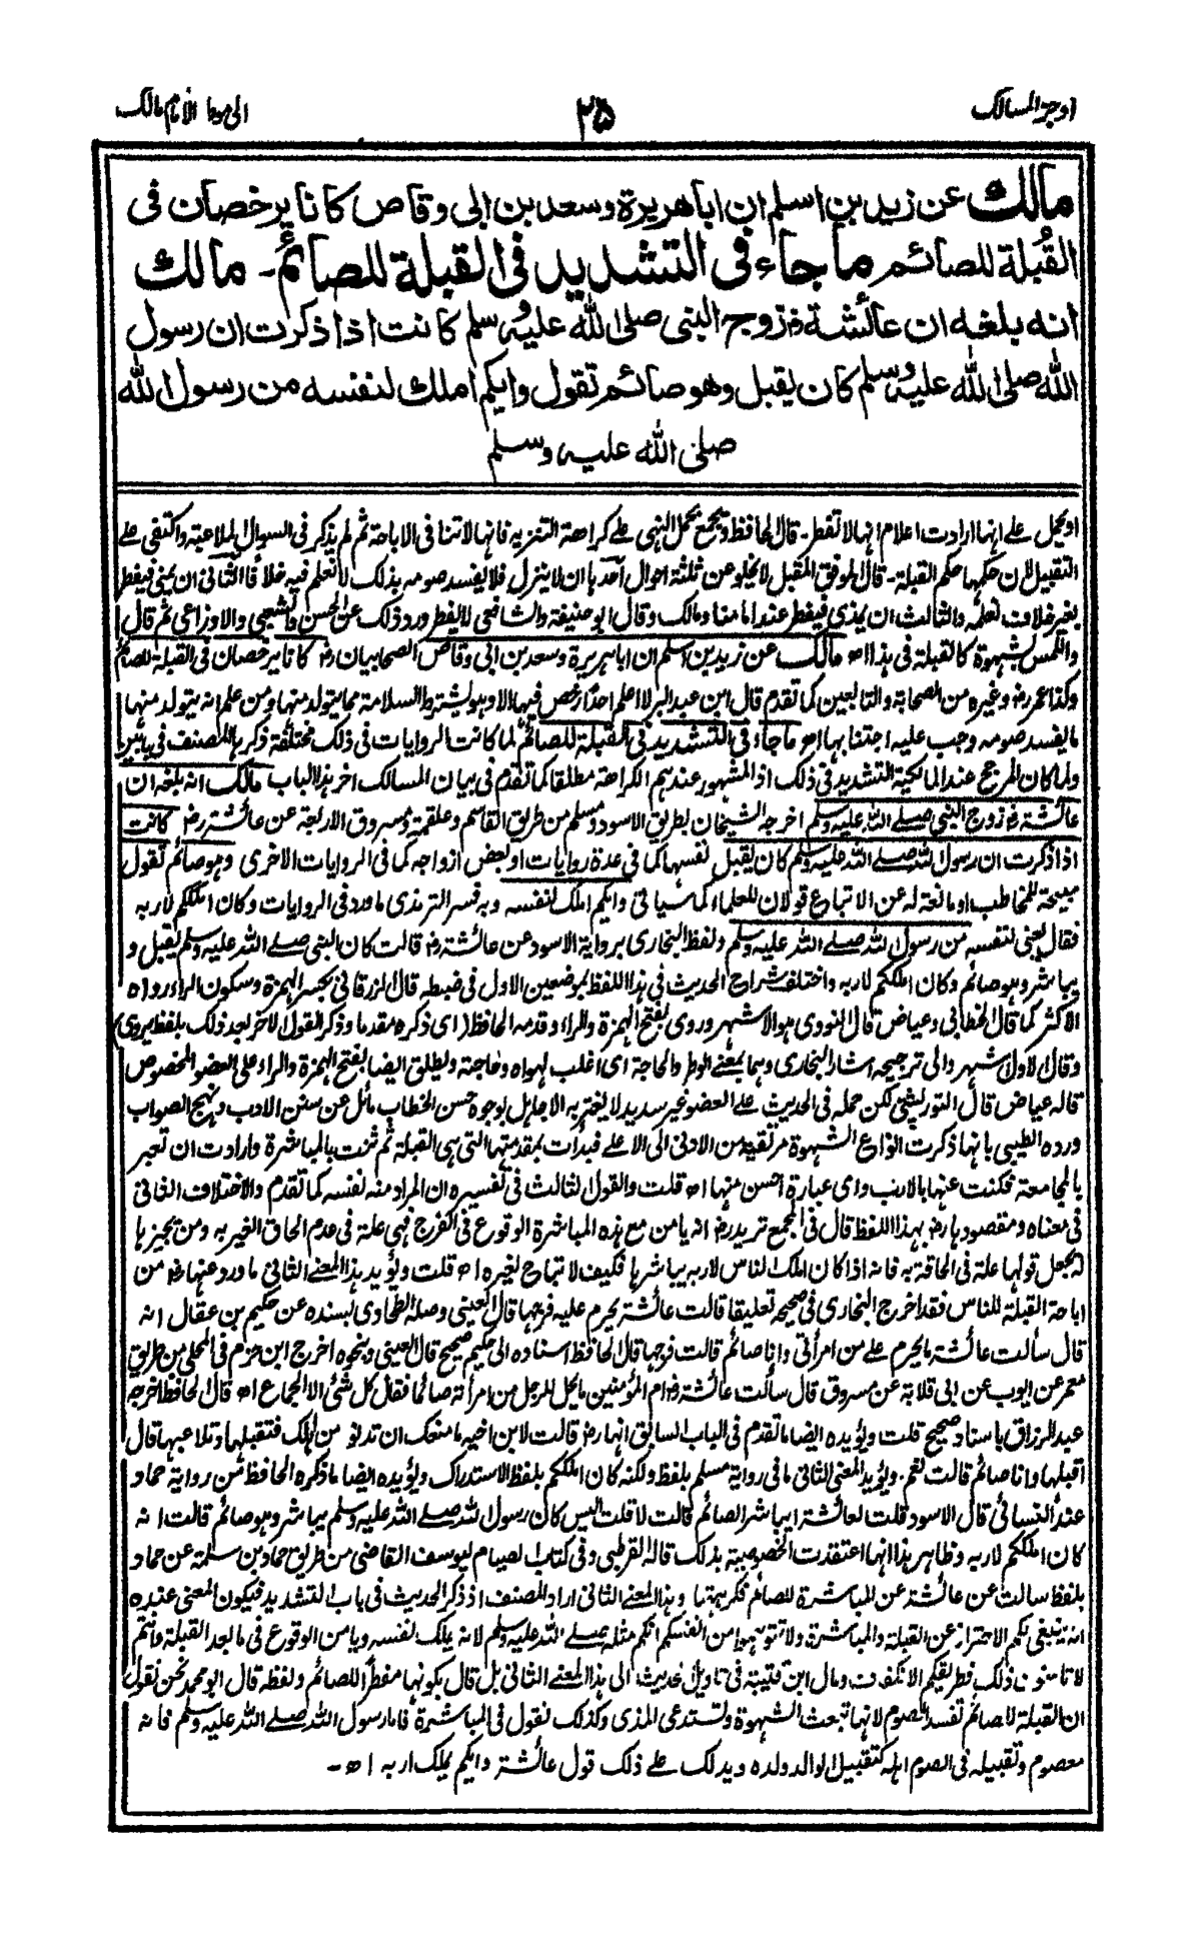 اوجز المسالك
٢٥
الى موطا الامام مالك
مالك عن زيد بن اسلم ان ابا هريرة وسعد بن ابى وقاص كانا يرخصان فى
القُبلة للصائم ما جاء فى التشديد فى القبلة للصائم۔ مالك
انه بلغه ان عائشة رضـ زوج النبى صلى الله عليه وسلم كانت اذا ذكرت ان رسول
الله صلى الله عليه وسلم كان يقبل وهو صائم تقول وايكم املك لنفسه من رسول الله
صلى الله عليه وسلم
او يحمل على انها ارادت اعلام انها لا تفطر۔ قال الحافظ ويجمع بحمل النهى على كراهة التنزيه فانها لا تنافى الاباحة ثم لم يذكر فى السوال الملاعبة واكتفى على
التقبيل لان حكمها حكم القبلة۔ قال الموفق المقبل لا يخلو عن ثلثة احوال احدها ان لا ينزل فلا يفسد صومه بذلك لا نعلم فيه خلافا الثانى ان يمنى فيفطر
بغير خلاف نعلمه والثالث ان يمذى فيفطر عند امامنا ومالك وقال ابو حنيفة والشافعى لا يفطر ورد ذلك عن الحسن والشعبى والاوزاعى ثم قال
واللمس لشهوة كالقبلة فى هذا اھ مالك عن زيد بن اسلم ان ابا هريرة وسعد بن ابى وقاص الصحابيان رضـ كانا يرخصان فى القبلة للصائم
وكذا عمر رضـ وغيره من الصحابة والتابعين كما تقدم قال ابن عبد البر لا اعلم احدًا رخص فيها الا وهو يشترط السلامة مما يتولد منها ومن علم انه يتولد منها
ما يفسد صومه وجب عليه اجتنابها اھ ما جاء فى التشديد فى القبلة للصائم لما كانت الروايات فى ذلك مختلفة ذكرها المصنف فى بابين
ولما كان المرجح عند المالكية التشديد فى ذلك اذ المشهور عندهم الكراهة مطلقا كما تقدم فى بيان المسالك اخر هذا الباب مالك انه بلغه ان
عائشة رضـ زوج النبى صلى الله عليه وسلم اخرجه الشيخان بطريق الاسود ومسلم من طريق القاسم وعلقمة ومسروق الاربعة عن عائشة رضـ كانت
اذا ذكرت ان رسول الله صلى الله عليه وسلم كان يقبل نفسها كما فى عدة روايات او بعض ازواجه كما فى الروايات الاخرى وهو صائم تقول
مبيحة للمخاطب او مانعة له عن الاتباع قولان للعلماء كما سياتى وايكم املك لنفسه وبه فسر الترمذى ما ورد فى الروايات وكان املككم لاربه
فقال يعنى لنفسه من رسول الله صلى الله عليه وسلم ولفظ البخارى برواية الاسود عن عائشة رضـ قالت كان النبى صلى الله عليه وسلم يقبل و
يباشر وهو صائم وكان املككم لاربه واختلف شراح الحديث فى هذا اللفظ بموضعين الاول فى ضبطه قال الزرقانى بكسر الهمزة وسكون الراء رواه
الاكثر كما قال الخطابى وعياض قال النووى هو الاشهر وروى بفتح الهمزة والراء وقدمه الحافظ (اى ذكره مقدما وذكر القول الآخر بعد ذلك بلفظ يروى)
وقال الاول اشهر والى ترجيحه اشار البخارى وهما بمعنى الوطر والحاجة اى اغلب لهواه وحاجته ويطلق ايضا بفتح الهمزة والراء على العضو المخصوص
قاله عياض قال التوربشتى لكن حمله فى الحديث على العضو غير سديد لا يغتر به الا جاهل بوجوه حسن الخطاب مائل عن سنن الادب ونهج الصواب
ورده الطيبى بانها ذكرت انواع الشهوة مرتقية من الادنى الى الاعلى فبدأت بمقدمتها التى هى القبلة ثم ثنت بالمباشرة وارادت ان تعبر
بالمجامعة فكنت عنها بالارب واى عبارة احسن منها اھ قلت والقول الثالث فى تفسيره ان المراد منه نفسه كما تقدم والاختلاف الثانى
فى معناه ومقصودها رضـ بهذا اللفظ قال فى المجمع تريد رضـ انه يامن مع هذه المباشرة الوقوع فى الفرج فهى علة فى عدم الحاق الغير به ومن يجيزها
يجعل قولها علة فى الحاقة به فانه اذا كان املك الناس لاربه يباشرها فكيف لا تباح لغيره اھ قلت ويؤيد هذا المعنى الثانى ما ورد عنها رضـ من
اباحة القبلة للناس فقد اخرج البخارى فى صحيحه تعليقا قالت عائشة يحرم عليه فرجها قال العينى وصله الطحاوى بسنده عن حكيم بن عقال انه
قال سألت عائشة ما يحرم على من امرأتى وانا صائم قالت فرجها قال الحافظ اسناده الى حكيم صحيح قال العينى وبنحوه اخرج ابن حزم فى المحلى من طريق
معمر عن ايوب عن ابى قلابة عن مسروق قال سألت عائشة رضـ ام المؤمنين ما يحل للرجل من امرأته صائما فقال كل شئ الا الجماع اھ قال الحافظ اخرجه
عبد الرزاق باسناد صحيح قلت ويؤيده ايضا ما تقدم فى الباب السابق انها رضـ قالت لابن اخيه ما منعك ان تدنو من اهلك فتقبلها وتلاعبها قال
اقبلها وانا صائم قالت نعم۔ ويؤيد المعنى الثانى ما فى رواية مسلم بلفظ ولكنه كان املككم بلفظ الاستدراك ويؤيده ايضا ما ذكره الحافظ من رواية حماد
عند النسائى قال الاسود قلت لعائشة ايباشر الصائم قالت لا قلت اليس كان رسول الله صلى الله عليه وسلم يباشر وهو صائم قالت انه
كان املككم لاربه وظاهر هذا انها اعتقدت الخصوصية بذلك قاله القرطبى وفى كتاب الصيام ليوسف القاضى من طريق حماد بن سلمة عن حماد
بلفظ سالت عن عائشة عن المباشرة للصائم فكرهتها وهذا المعنى الثانى اراد المصنف اذ ذكر الحديث فى باب التشديد فيكون المعنى عنده
انه ينبغى لكم الاحتراز عن القبلة والمباشرة ولا تتوهموا من انفسكم انكم مثله صلى الله عليه وسلم لانه يملك نفسه ويامن الوقوع فى ما بعد القبلة وانتم
لا تامنون ذلك فطريقكم الانكفاف ومال ابن قتيبة فى تاويل الحديث الى هذا المعنى الثانى بل قال بكونها مفطرًا للصائم ولفظه قال ابو محمد نحن نقول
ان القبلة للصائم تفسد الصوم لانها تبعث الشهوة وتستدعى المذى وكذلك نقول فى المباشرة فاما رسول الله صلى الله عليه وسلم فانه
معصوم وتقبيله فى الصوم اهله كتقبيل الوالد ولده ويدلك على ذلك قول عائشة وايكم يملك اربه اھ۔